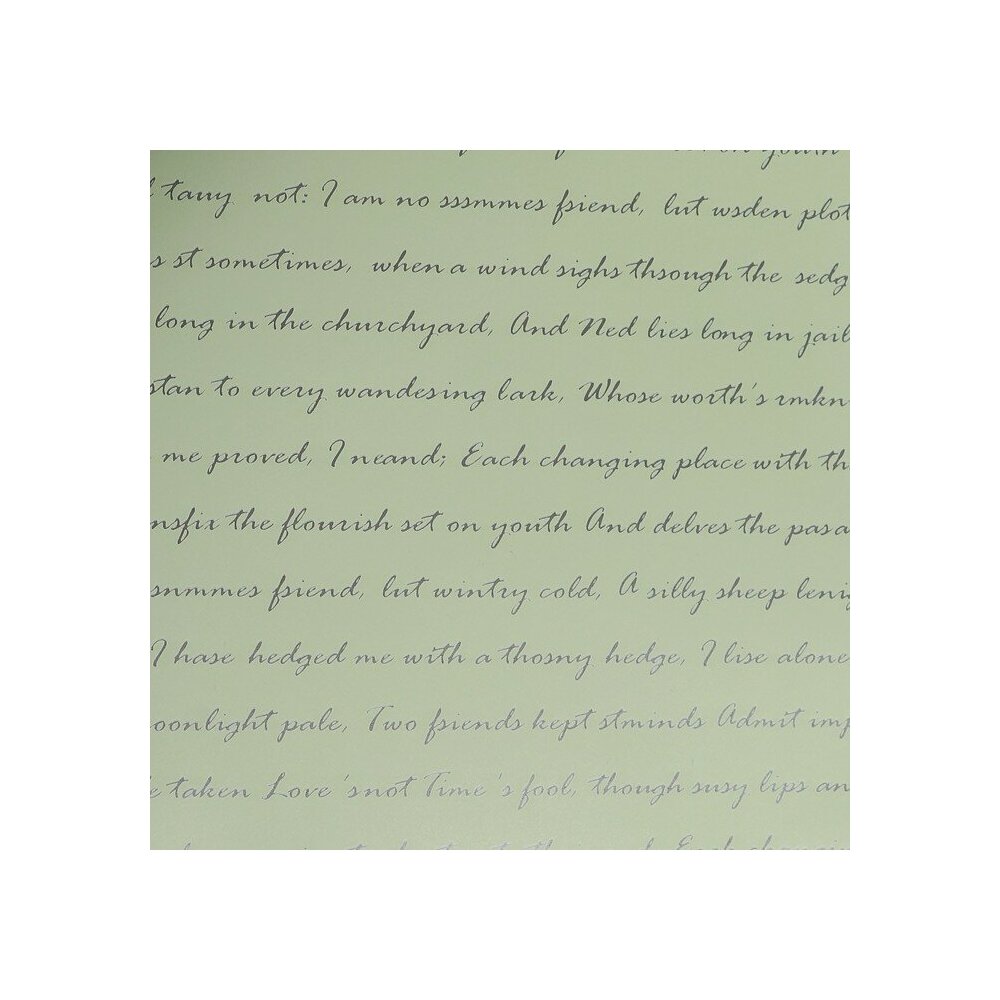 on youth
tauy not: I am no sssmmes fsiend, lut wsden plot
s st sometimes, when a wind sighs thsough the sedg
long in the churchyard, And Ned lies long in jail
stan to every wandesing lark, Whose worth's rmkn
me proved, I neand; Each changing place with th
nsfix the flourish set on youth And delves the pasa
snmmes fsiend, lut wintry cold, A silly sheep leni
I hase hedged me with a thosny hedge, I lise alone
oonlight pale, Two fsiends kept stminds Admit imp
e taken Love's not Time's fool, though susy lips an
Each changin